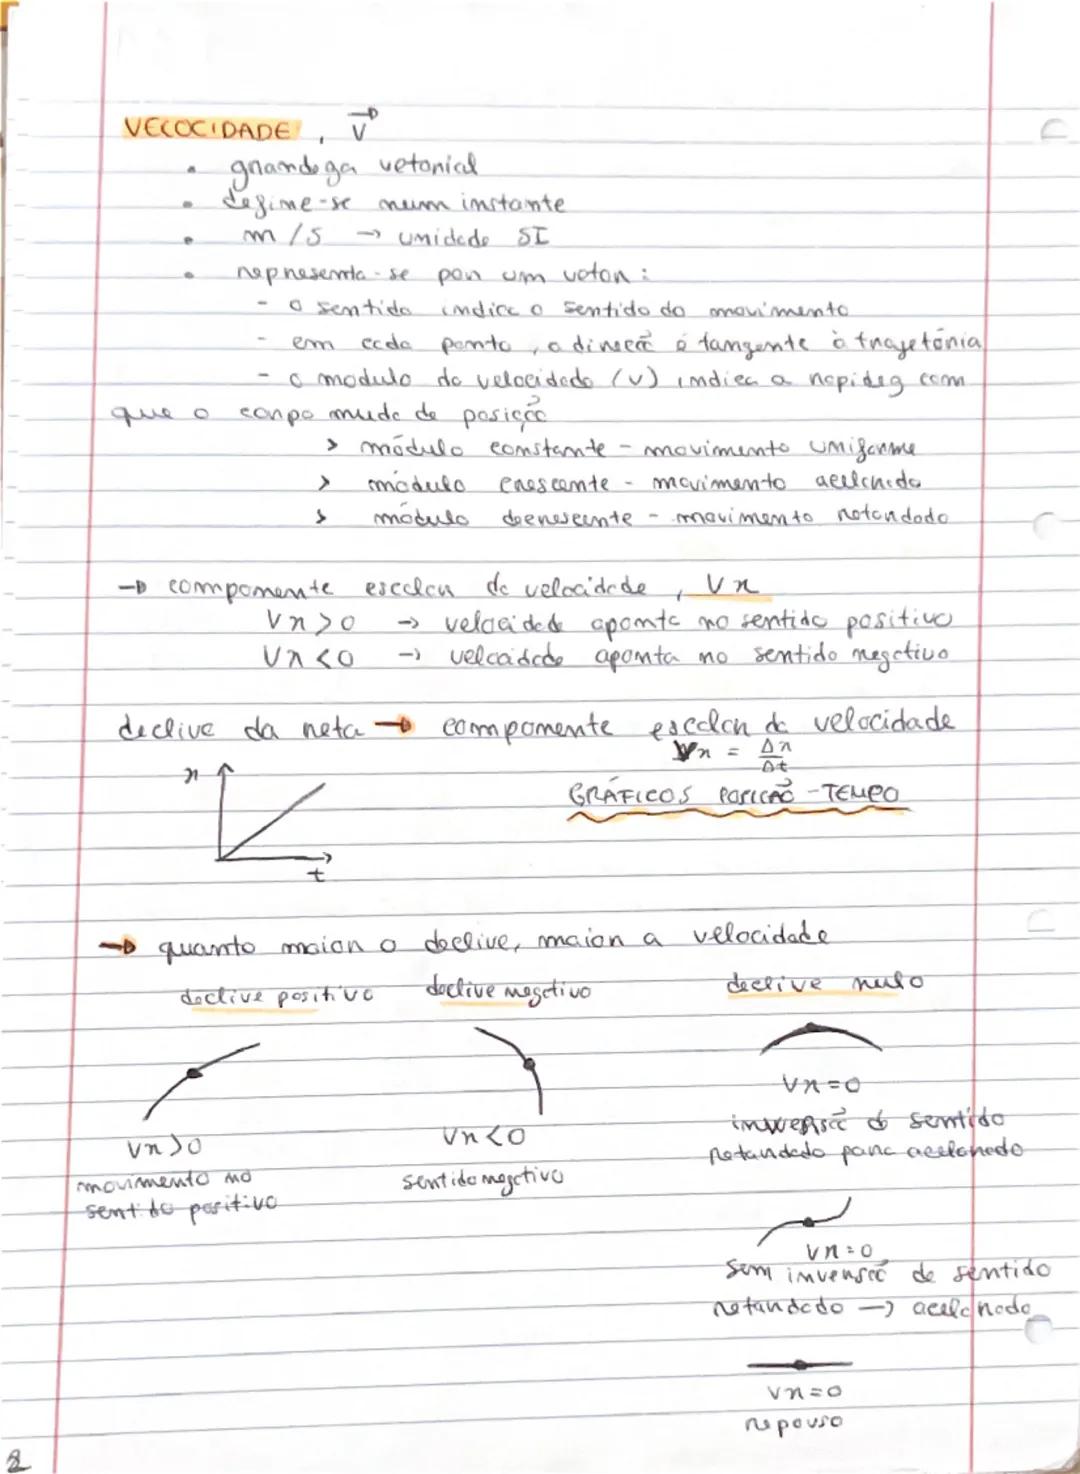 VELOCIDADE, v⃗
• grandeza vetorial
• define-se num instante
• m/s → unidade SI
• representa-se por um vetor:
- o sentido indica o sentido do movimento
- em cada ponto, a direção é tangente à trajetória
- o modulo da velocidade (v) indica a rapidez com
que o corpo muda de posição
> módulo constante - movimento uniforme
> módulo crescente - movimento acelerado
> módulo decrescente - movimento retardado
→ componente escalar da velocidade, Vx
Vx>0 → velocidade aponta no sentido positivo
Vx<0 → velocidade aponta no sentido negativo
declive da reta → componente escalar da velocidade
Vx = Δx/Δt
x
GRÁFICOS POSIÇÃO-TEMPO
t
→ quanto maior o declive, maior a velocidade
declive positivo declive negativo declive nulo
Vx=0
Vx>0 Vx<0 inversão de sentido
retardado para acelerado
movimento no sentido negativo
sentido positivo
Vx=0
sem inversão de sentido
retardado → acelerado
Vx=0
repouso
2